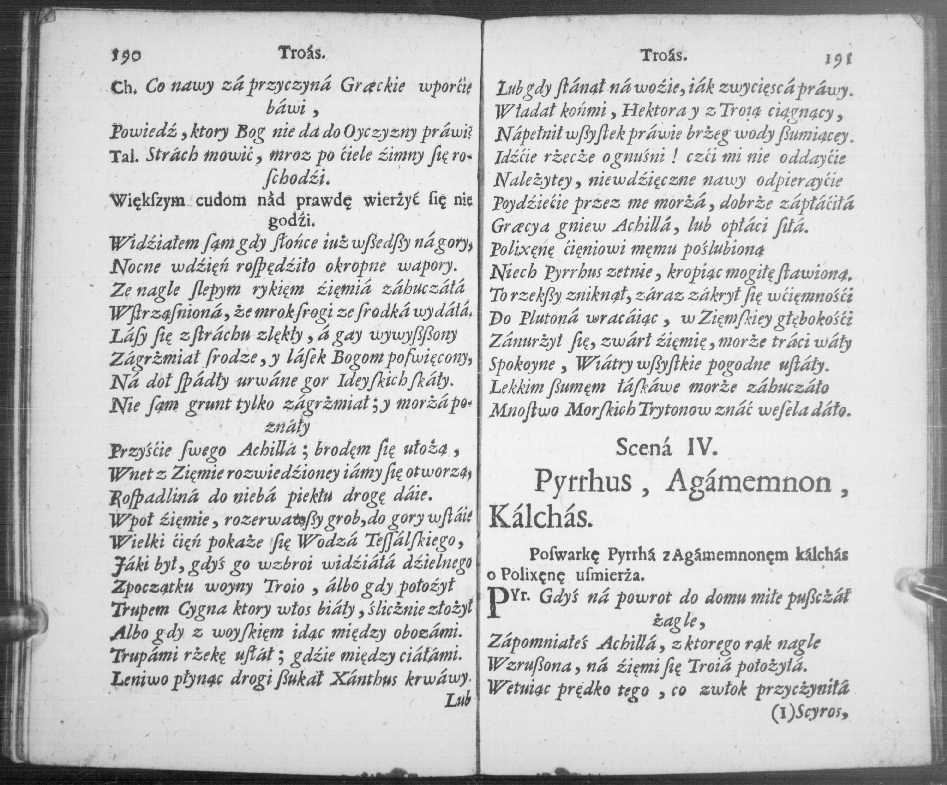 190 Troás.
Ch. Co nawy zá przyczyná Græckie wporćie
báwi,
Powiedź, ktory Bog nie da do Oyczyzny práwi?
Tal. Strách mowić, mroz po ćiele źimny ſię ro-
ſchodźi.
Większym cudom nád prawdę wierżyć się nie
godźi.
Widźiałem ſąm gdy ſłońce iuż wſzedſzy ná gory,
Nocne wdźięń roſpędźiło okropne wapory.
Ze nagle ſlepym rykięm źięmiá záhuczáłá
Wſtrząſnioná, że mrok ſrogi ze ſrodká wydáłá.
Láſy ſię z ſtráchu zlękły, á gay wywyſſzony
Zágrżmiał ſrodze, y láſek Bogom poſwięcony,
Ná doł ſpádły urwáne gor Ideyſkich ſkáły.
Nie ſąm grunt tylko zágrżmiał; y morżá po-
znály
Przyśćie ſwego Achillá; brodęm ſię ułożą,
Wnet z Zięmie rozwiedźioney iámy ſię otworzą,
Roſpadliná do niebá piekłu drogę dáie.
Wpoł źięmie, rozerwawſzy grob, do gory wſtáie
Wielki ćięń pokaże ſię Wodzá Teſſálſkiego,
Jáki był, gdyś go wzbroi widźiáłá dźielnego
Zpoczątku woyny Troio, álbo gdy położył
Trupem Cygna ktory włos biáły, ślicżnie złożył
Albo gdy z woyſkięm idąc między obozámi.
Trupámi rżekę uſtáł; gdzie między ciáłami.
Leniwo płynąc drogi ſzukał Xánthus krwáwy.
Lub
Troás. 191
Lub gdy ſtánął ná woźie, iák zwycięscá práwy.
Władał końmi, Hektora y z Troią ciągnący,
Nápełnił wſzyſtek práwie brżeg wody ſzumiącey.
Idźćie rżecże ognuśni! czći mi nie oddayćie
Należytey, niewdźięczne nawy odpierayćie
Poydźiećie przez me morżá, dobrże zápłáćiłá
Græcya gniew Achillá, lub opłáci ſiłá.
Polixęnę ćięniowi męmu poślubioną
Niech Pyrrhus zetnie, kropiąc mogiłę ſtawioną.
To rzekſzy zniknął, záraz zákrył ſię wćięmnośći
Do Plutoná wracáiąc, w Zięmſkiey głębokośći
Zánurżył ſię, zwárł źięmię, morże tráci wáły
Spokoyne, Wiátry wſzyſtkie pogodne uſtáły.
Lekkim ſzumęm łáſkáwe morże záhuczáło
Mnoſtwo Morſkich Trytonow znáć weſela dáło.
Scená IV.
Pyrrhus, Agámemnon,
Kálchás.
Poſwarkę Pyrrhá z Agámemnonęm kálchás
o Polixęnę uſmierża.
Pyr. Gdyś ná powrot do domu miłe puſzcżał
żagle,
Zápomniałeś Achillá, z ktorego rąk nagle
Wzruſzona, ná źięmi ſię Troiá położyłá.
Wetuiąc prędko tego, co zwłok przycżyniłá
(1) Scyros,